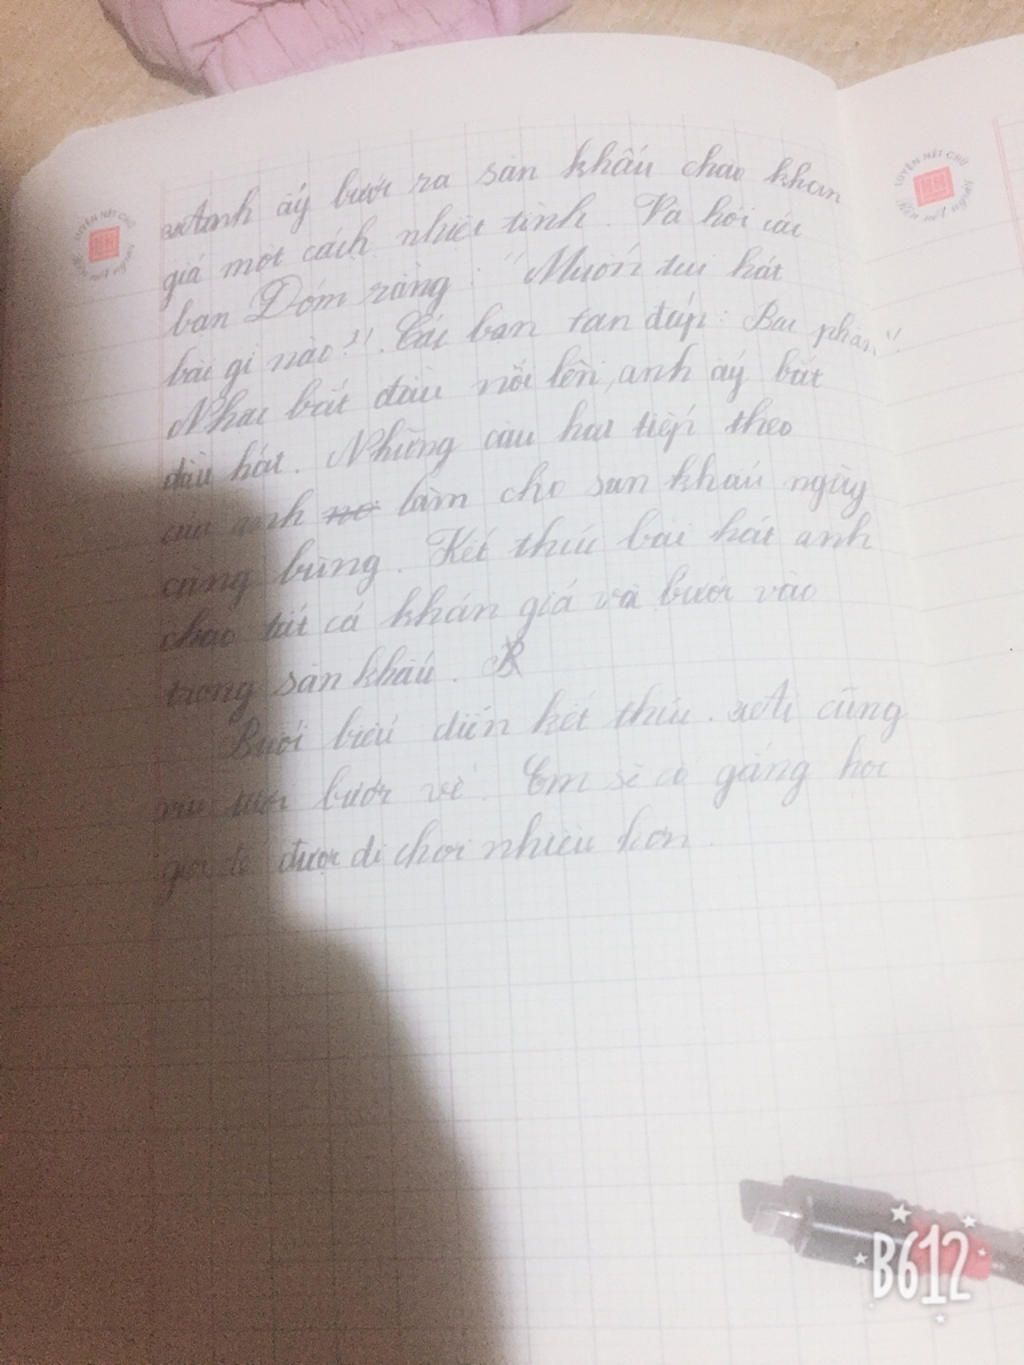 Anh ấy bước ra sân khấu chào khán
giả một cách nhiệt tình. Và hỏi các
bạn Đóm rằng: "Muốn tui hát
bài gì nào?". Các bạn fan đáp: Bạc phận"
Nhạc bắt đầu nổi lên, anh ấy bắt
đầu hát. Những câu hát tiếp theo
của anh làm cho sân khấu ngày
càng bùng. Kết thúc bài hát anh
chào tất cả khán giả và bước vào
trong sân khấu.
Buổi biểu diễn kết thúc. Ai cũng
bước về. Em sẽ cố gắng học
giỏi để được đi chơi nhiều hơn.
LUYỆN NÉT CHỮ
Rèn nết người
LUYỆN NÉT CHỮ
Rèn nết người
B612